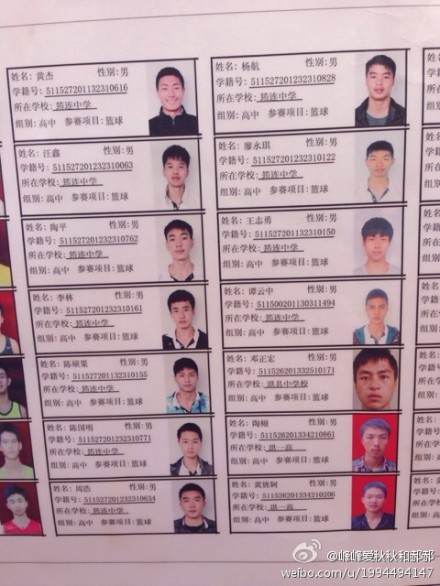 姓名: 黄杰 性别:男
学籍号: 511527201132310616
所在学校: 筠连中学
组别:高中 参赛项目:篮球
姓名: 汪鑫 性别:男
学籍号: 511527201232310063
所在学校: 筠连中学
组别:高中 参赛项目:篮球
姓名: 陶平 性别:男
学籍号: 511527201232310762
所在学校: 筠连中学
组别:高中 参赛项目:篮球
姓名: 李林 性别:男
学籍号: 511527201232310161
所在学校: 筠连中学
组别:高中 参赛项目:篮球
姓名: 陈硕果 性别:男
学籍号: 511527201132310155
所在学校: 筠连中学
组别:高中 参赛项目:篮球
姓名: 陈国明 性别:男
学籍号: 511527201232310771
所在学校: 筠连中学
组别:高中 参赛项目:篮球
姓名: 周浩 性别:男
学籍号: 511527201232310634
所在学校: 筠连中学
组别:高中 参赛项目:篮球
姓名: 杨航 性别:男
学籍号: 511527201232310828
所在学校: 筠连中学
组别:高中 参赛项目:篮球
姓名: 廖永琪 性别:男
学籍号: 511527201232310122
所在学校: 筠连中学
组别:高中 参赛项目:篮球
姓名: 王志勇 性别:男
学籍号: 511527201132310150
所在学校: 筠连中学
组别:高中 参赛项目:篮球
姓名: 谭云中 性别:男
学籍号: 511500201130311494
所在学校: 筠连中学
组别:高中 参赛项目:篮球
姓名: 邓正宏 性别:男
学籍号: 511526201332510171
所在学校: 珙县中学校
组别:高中 参赛项目:篮球
姓名: 陶栩 性别:男
学籍号: 511526201334210661
所在学校: 珙一高
组别:高中 参赛项目:篮球
性别:男
学籍号: 511526201334210206
所在学校: 珙一高
组别:高中 参赛项目:篮球
@峰峰爱秋秋和郝郝
weibo.com/u/1994494147